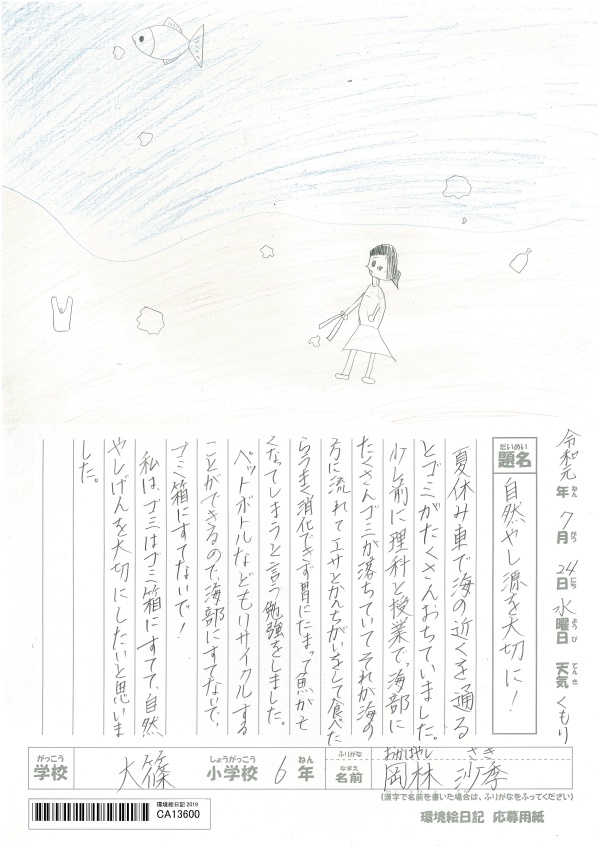 令和元年 7月 24日 水曜日 天気 くもり
ねん がつ にち ようび てんき
だいめい
題名
自然やし源を大切に!
夏休み車で海の近くを通る
とゴミがたくさんおちていました。
少し前に理科と授業でっ海部に
たくさんゴミが落ちていてそれが海の
方に流れてエサとかんちがいをして食べた
らうまく消化できず胃にたまって魚がそ
くなってしまうと言う勉強をしました。
ペットボトルなどもリサイクルする
ことができるので、海部にすてないで、
ゴミ箱にすてないで!
私は、ゴミはゴミ箱にすてて、自然
やしげんを大切にしたいと思いま
した。
がっこう
学校
大篠
しょうがっこう
小学校
6
ねん
年
ふりがな
おかばやし さき
なまえ
名前
岡林 沙季
(漢字で名前を書いた場合は、ふりがなをふってください)
環境絵日記2019
CA13600
環境絵日記 応募用紙